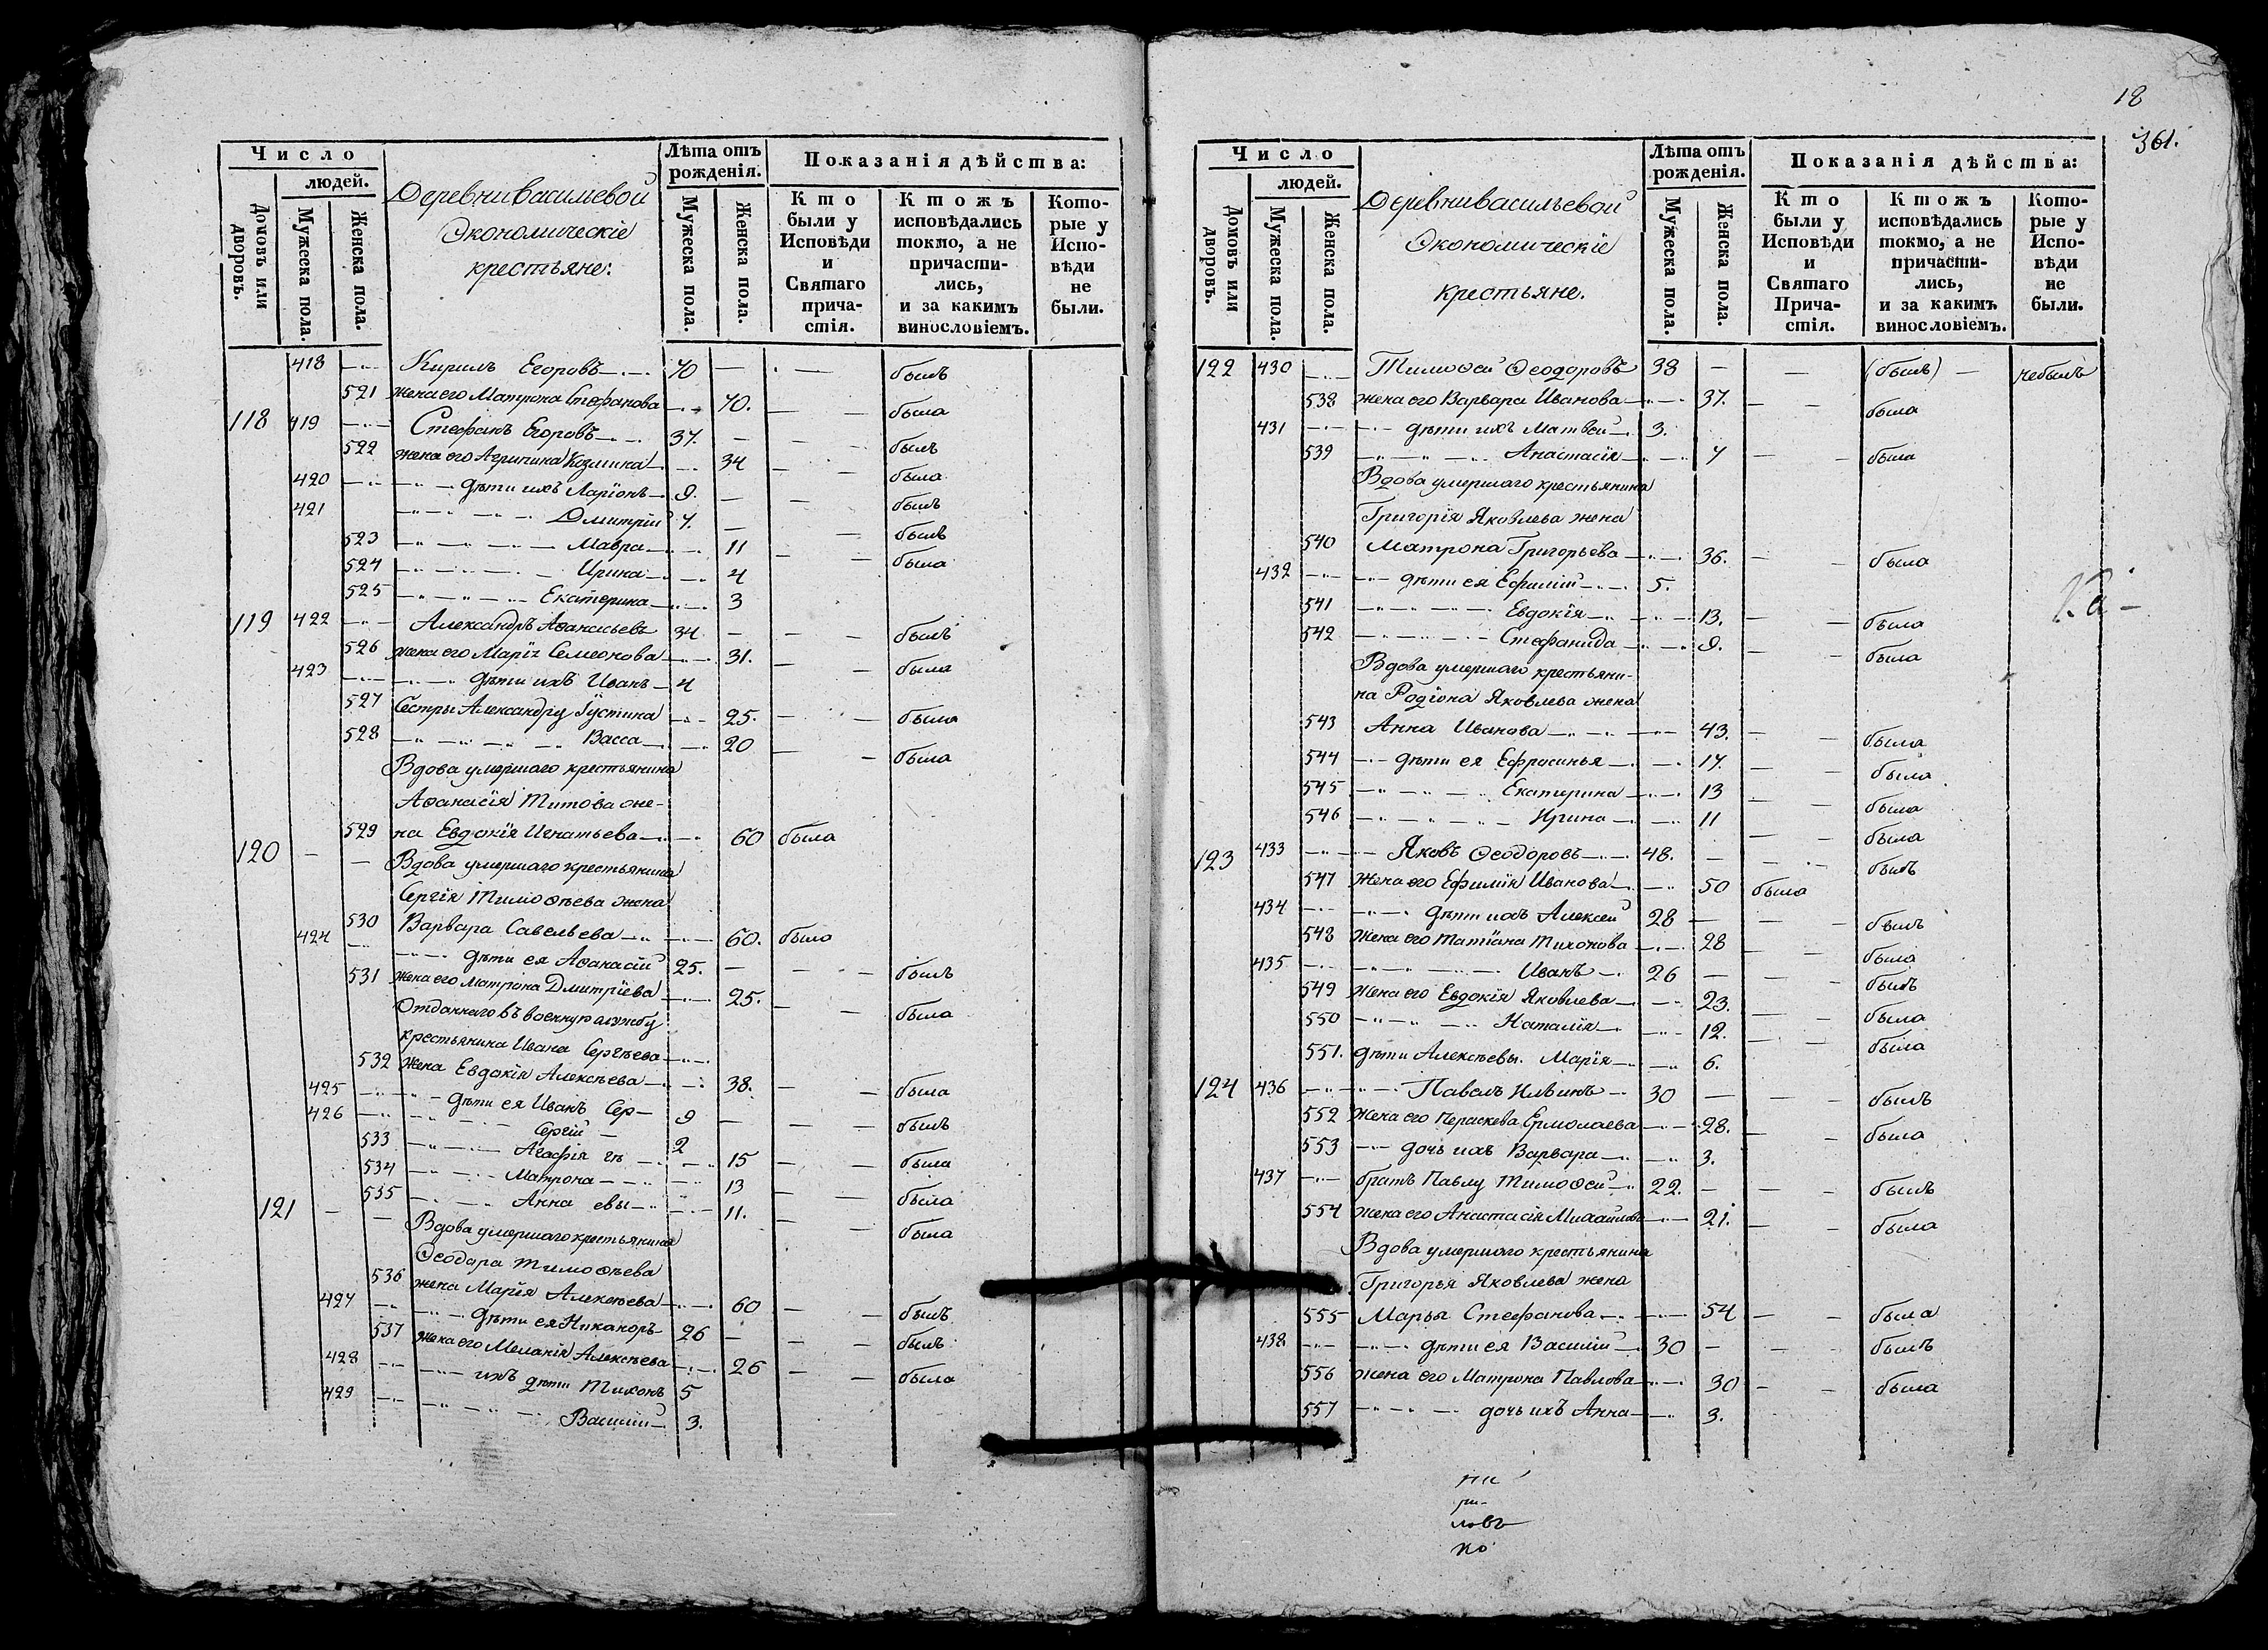 Число
людей.
Домовъ или дворовъ.
Мужеска пола.
Женска пола.
Деревни Васильевой
Экономическіе
крестьяне:
Лѣта отъ рожденія.
Мужеска пола.
Женска пола.
Показанія дѣйства:
Кто были у Исповѣди и Святаго причастія.
Ктожъ исповѣдались токмо, а не причастились, и за какимъ винословіемъ.
Которые у Исповѣди не были.
418 Кирилъ Егоровъ 70 былъ
521 жена его Матрона Стефанова 70. была
118 419 Стефанъ Егоровъ 37. былъ
522 жена его Агрипина Козмина 34 была
420 дѣти ихъ Ларіонъ 9. былъ
421 Дмитрій 7. былъ
523 Мавра 11 была
524 Ирина 4
525 Екатерина 3
119 422 Александръ Аѳанасьевъ 34 былъ
526 жена его Марія Семеонова 31. была
423 дѣти ихъ Иванъ 4
527 Сестры Александру Іустина 25. была
528 Васса 20 была
Вдова умершаго крестьянина
Аѳанасія Титова же-
529 на Евдокія Игнатьева 60 была
120 Вдова умершаго крестьянина
Сергія Тимоѳѣева жена
530 Варвара Савельева 60. была
424 дѣти ея Аѳанасій 25. былъ
531 жена его Матрона Дмитріева 25. была
Отданнаго въ военную службу
крестьянина Ивана Сергѣева
532 жена Евдокія Алексѣева 38. была
425 дѣти ея Иванъ Сер- 9 былъ
426 Сергій 2
533 Агафія гѣ 15 была
534 Матрона 13 была
535 Анна евы 11. была
121 Вдова умершаго крестьянина
Ѳеодора Тимоѳѣева
536 жена Марія Алексѣева 60 былъ
427 дѣти ея Никаноръ 26 былъ
537 жена его Меланія Алексѣева 26 была
428 ихъ дѣти Тихонъ 5
429 Василій 3.
18
361.
Число
людей.
Домовъ или дворовъ.
Мужеска пола.
Женска пола.
Деревни Васильевой
Экономическіе
крестьяне.
Лѣта отъ рожденія.
Мужеска пола.
Женска пола.
Показанія дѣйства:
Кто были у Исповѣди и Святаго Причастія.
Ктожъ исповѣдались токмо, а не причастились, и за какимъ винословіемъ.
Которые у Исповѣди не были.
122 430 Тимоѳей Ѳеодоровъ 38 (былъ) небылъ
538 жена его Варвара Иванова 37. была
431 дѣти ихъ Матвей 3.
539 Анастасія 7 была
Вдова умершаго крестьянина
Григорія Яковлева жена
540 Матрона Григорьева 36. была
432 дѣти ея Ефимій 5.
541 Евдокія 13. была
542 Стефанида 9. была
Вдова умершаго крестьяни-
на Родіона Яковлева жена
543 Анна Иванова 43. была
544 дѣти ея Ефросинья 17. была
545 Екатерина 13 была
546 Ирина 11 была
123 433 Яковъ Ѳеодоровъ 48. былъ
547 Жена его Ефимія Иванова 50 была
434 дѣти ихъ Алексей 28 былъ
548 Жена его Татіана Тихонова 28 была
435 Иванъ 26 былъ
549 Жена его Евдокія Яковлева 23. была
550 Наталія 12. была
551. дѣти Алексѣевы. Марія 6.
124 436 Павелъ Ильинъ 30 былъ
552 Жена его Пераскева Ермолаева 28. была
553 дочь ихъ Варвара 3.
437 братъ Павлу Тимоѳей 22. былъ
554 жена его Анастасія Михайлова 21. была
Вдова умершаго крестьянина
Григорья Яковлева жена
555 Марья Стефанова 54 была
438 дѣти ея Василій 30 былъ
556 жена его Матрона Павлова 30 была
557 дочь ихъ Анна 3.
ловъ
ко